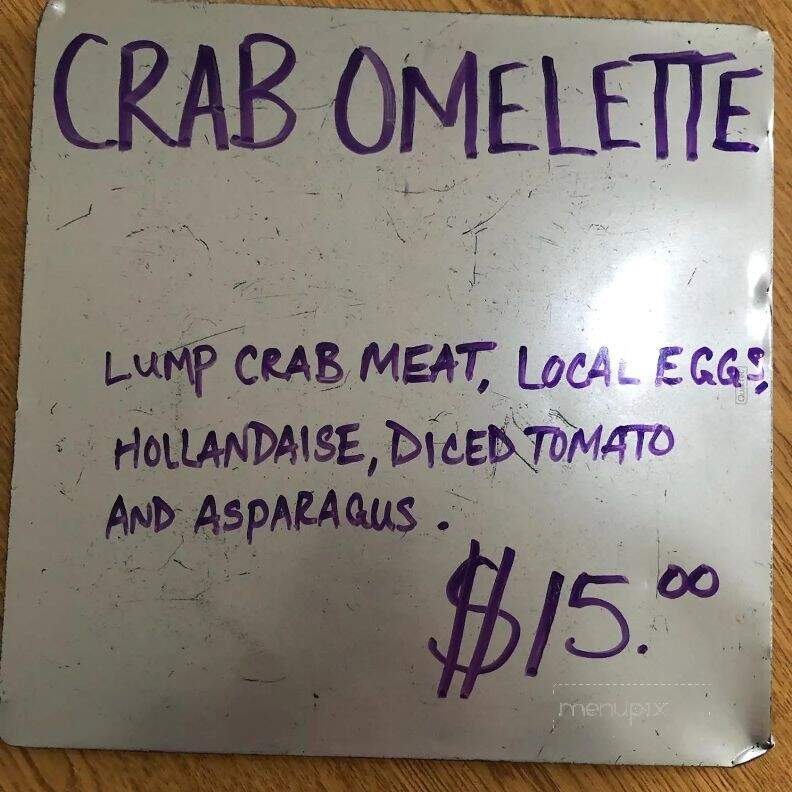 CRAB OMELETTE
LUMP CRAB MEAT, LOCAL EGGS,
HOLLANDAISE, DICED TOMATO
AND ASPARAGUS.
$15.00
menupix